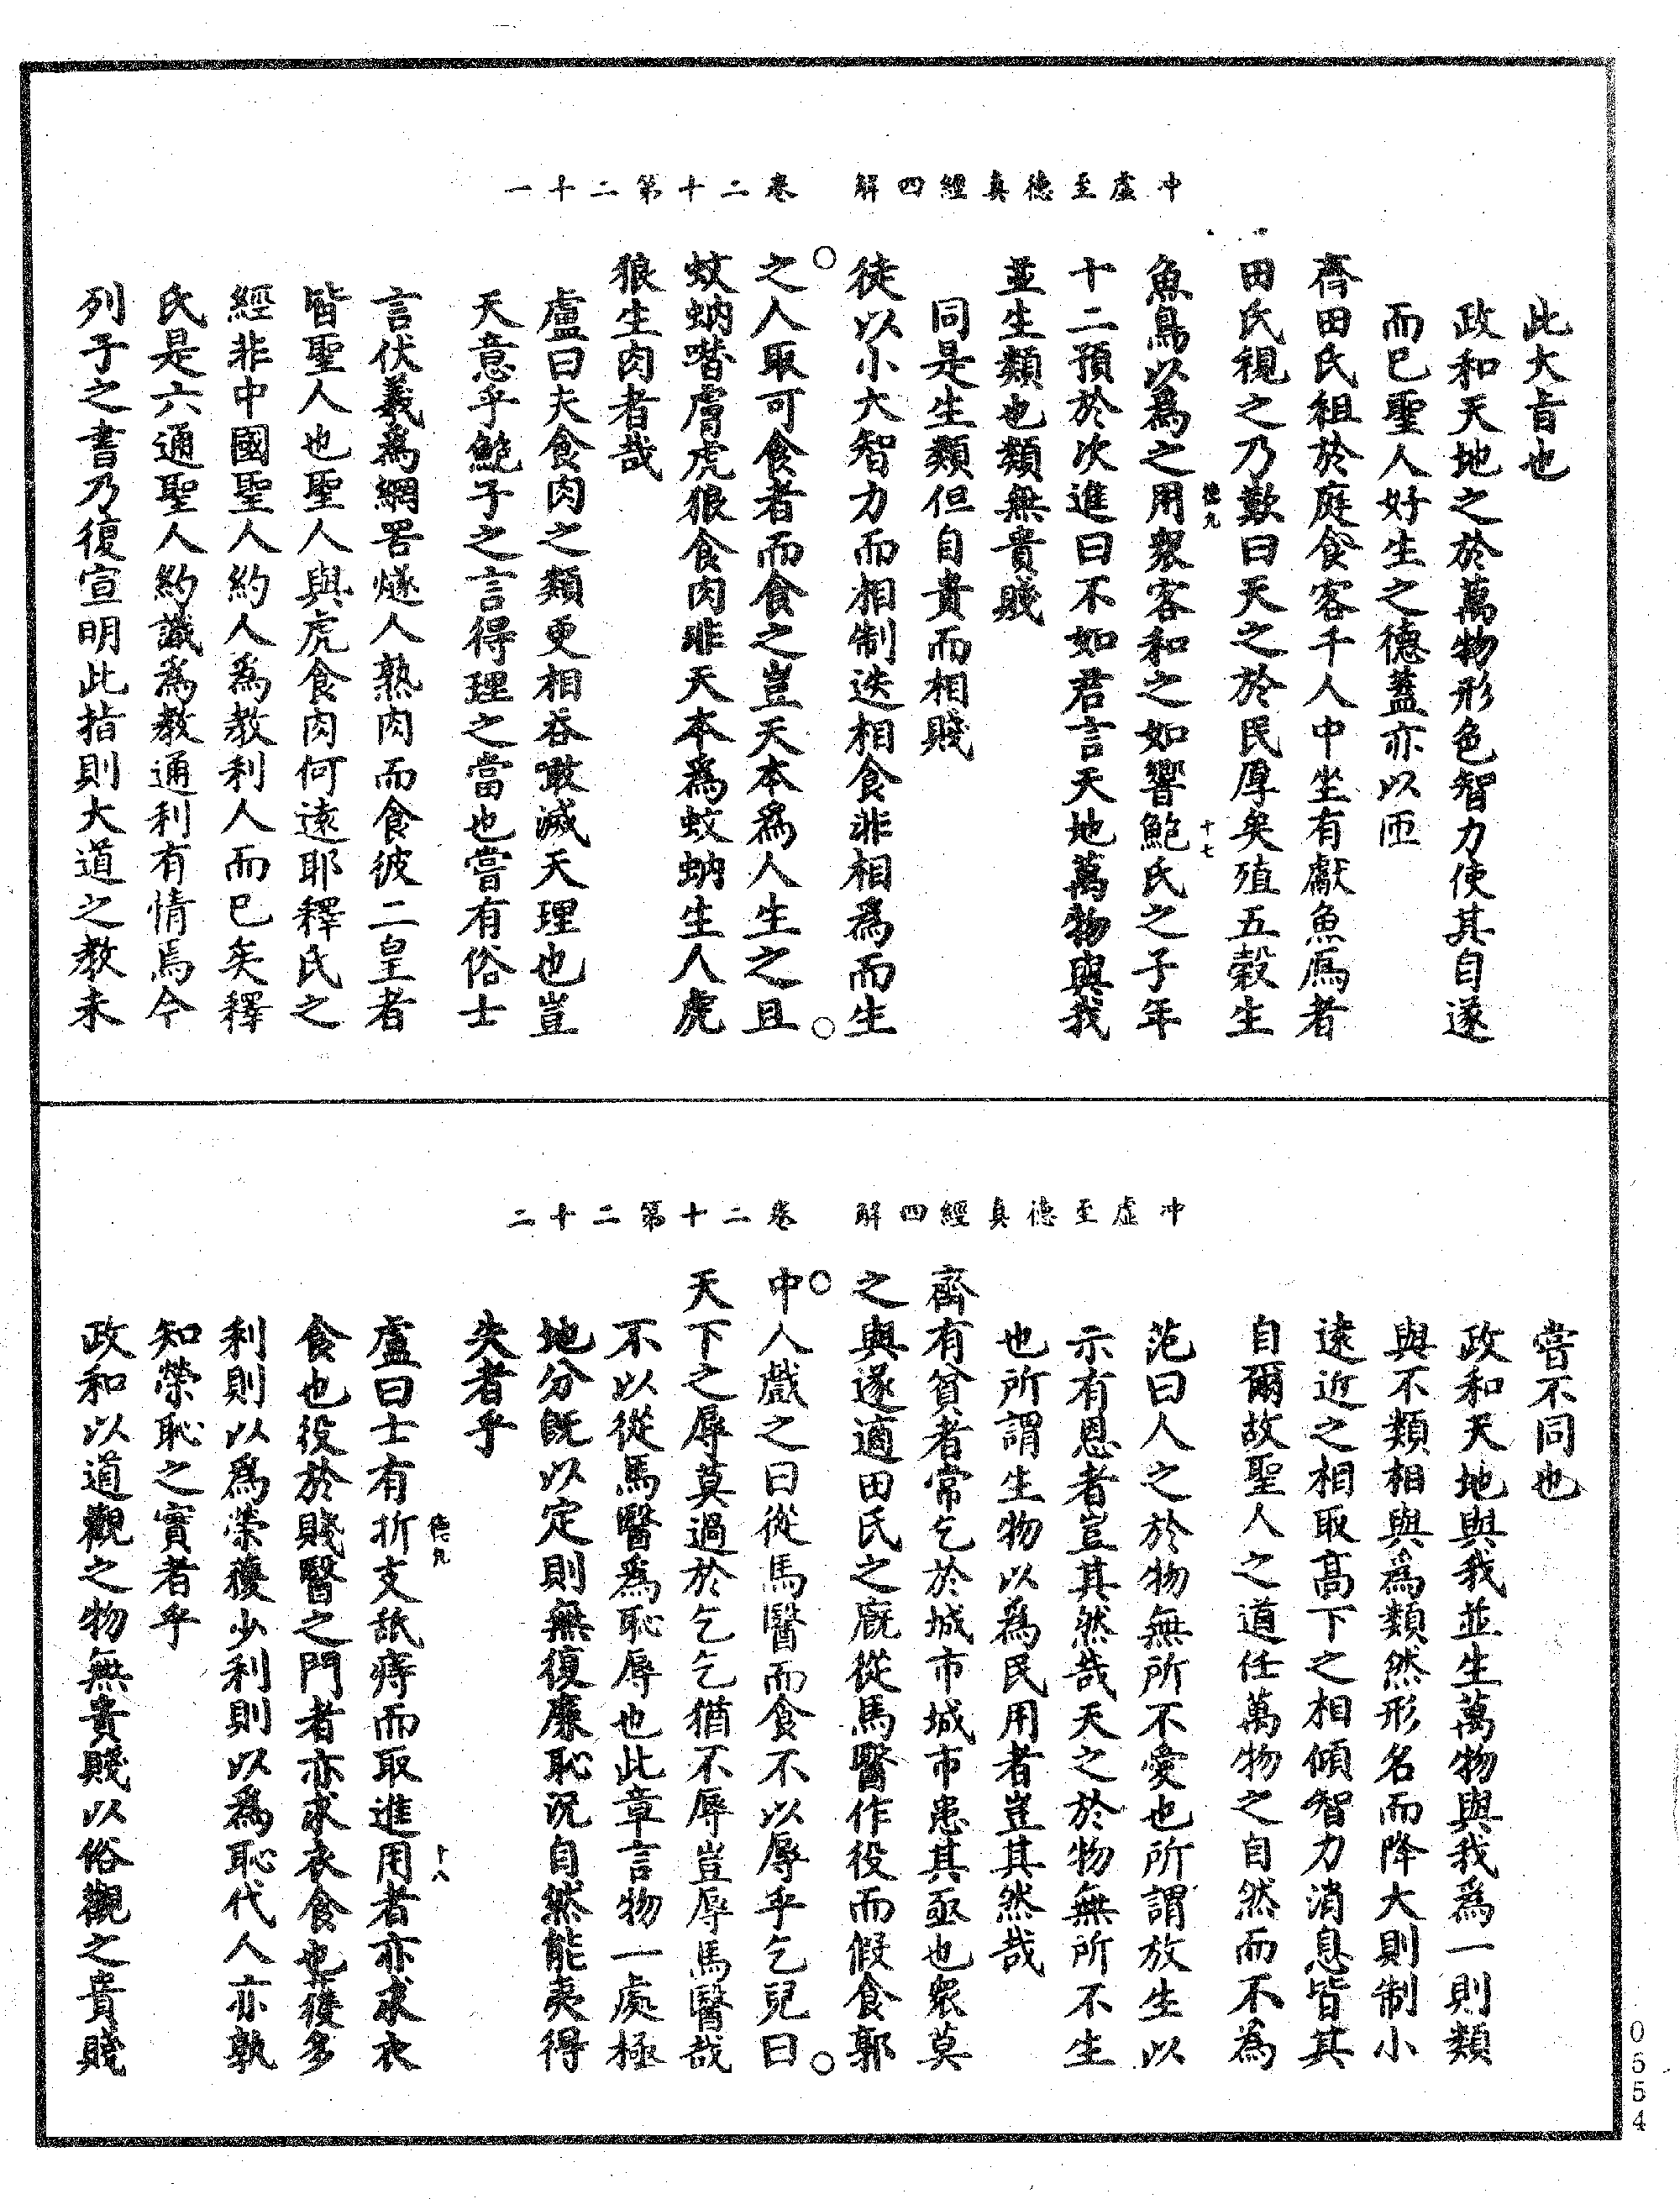 冲虛至德真經四解　卷二十第二十一
此大旨也
政和天地之於萬物形色智力使其自遂
而已聖人好生之德蓋亦以匝
齊田氏祖於庭食客千人中坐有獻魚鴈者
田氏視之乃歎曰天之於民厚矣殖五穀生
德九
十七
魚鳥以為之用衆客和之如響鮑氏之子年
十二預於次進曰不如君言天地萬物與我
並生類也類無貴賤
同是生類但自貴而相賤
徒以小大智力而相制迭相食非相為而生
之人取可食者而食之豈天本為人生之且
蚊蚋噆膚虎狼食肉非天本為蚊蚋生人虎
狼生肉者哉
盧曰夫食肉之類更相吞噉滅天理也豈
天意乎鮑子之言得理之當也嘗有俗士
言伏羲為網罟燧人熟肉而食彼二皇者
皆聖人也聖人與虎食肉何遠耶釋氏之
經非中國聖人約人為教利人而已矣釋
氏是六通聖人約識為教通利有情焉今
列子之書乃復宣明此指則大道之教未
冲虛至德真經四解　卷二十第二十二
嘗不同也
政和天地與我並生萬物與我為一則類
與不類相與為類然形名而降大則制小
遠近之相取高下之相傾智力消息皆其
自爾故聖人之道任萬物之自然而不為
范曰人之於物無所不愛也所謂放生以
示有恩者豈其然哉天之於物無所不生
也所謂生物以為民用者豈其然哉
齊有貧者常乞於城市城市患其亟也衆莫
之與遂適田氏之廐從馬醫作役而假食郭
中人戲之曰從馬醫而食不以辱乎乞兒曰
天下之辱莫過於乞乞猶不辱豈辱馬醫哉
不以從馬醫為恥辱也此章言物一處極
地分既以定則無復廉恥況自然能夷得
失者乎
德九
十八
盧曰士有折支舐痔而取進用者亦求衣
食也役於賤醫之門者亦求衣食也獲多
利則以為榮獲少利則以為恥代人亦孰
知榮恥之實者乎
政和以道觀之物無貴賤以俗觀之貴賤
0654